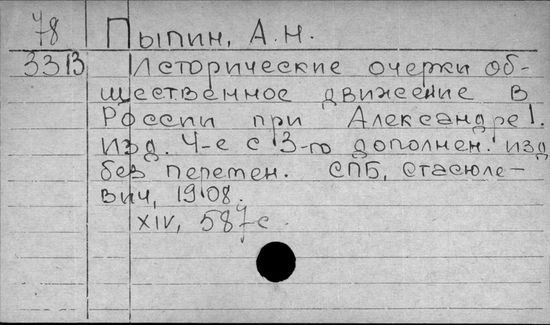 78 Пыпин, А.Н.
3313 Исторические очерки об-
щественное движение в
России при Александре I.
изд. 4-е с 3-го дополнен. изд
без перемен. СПБ, Стасюле-
вич, 1908.
XIV, 587с.